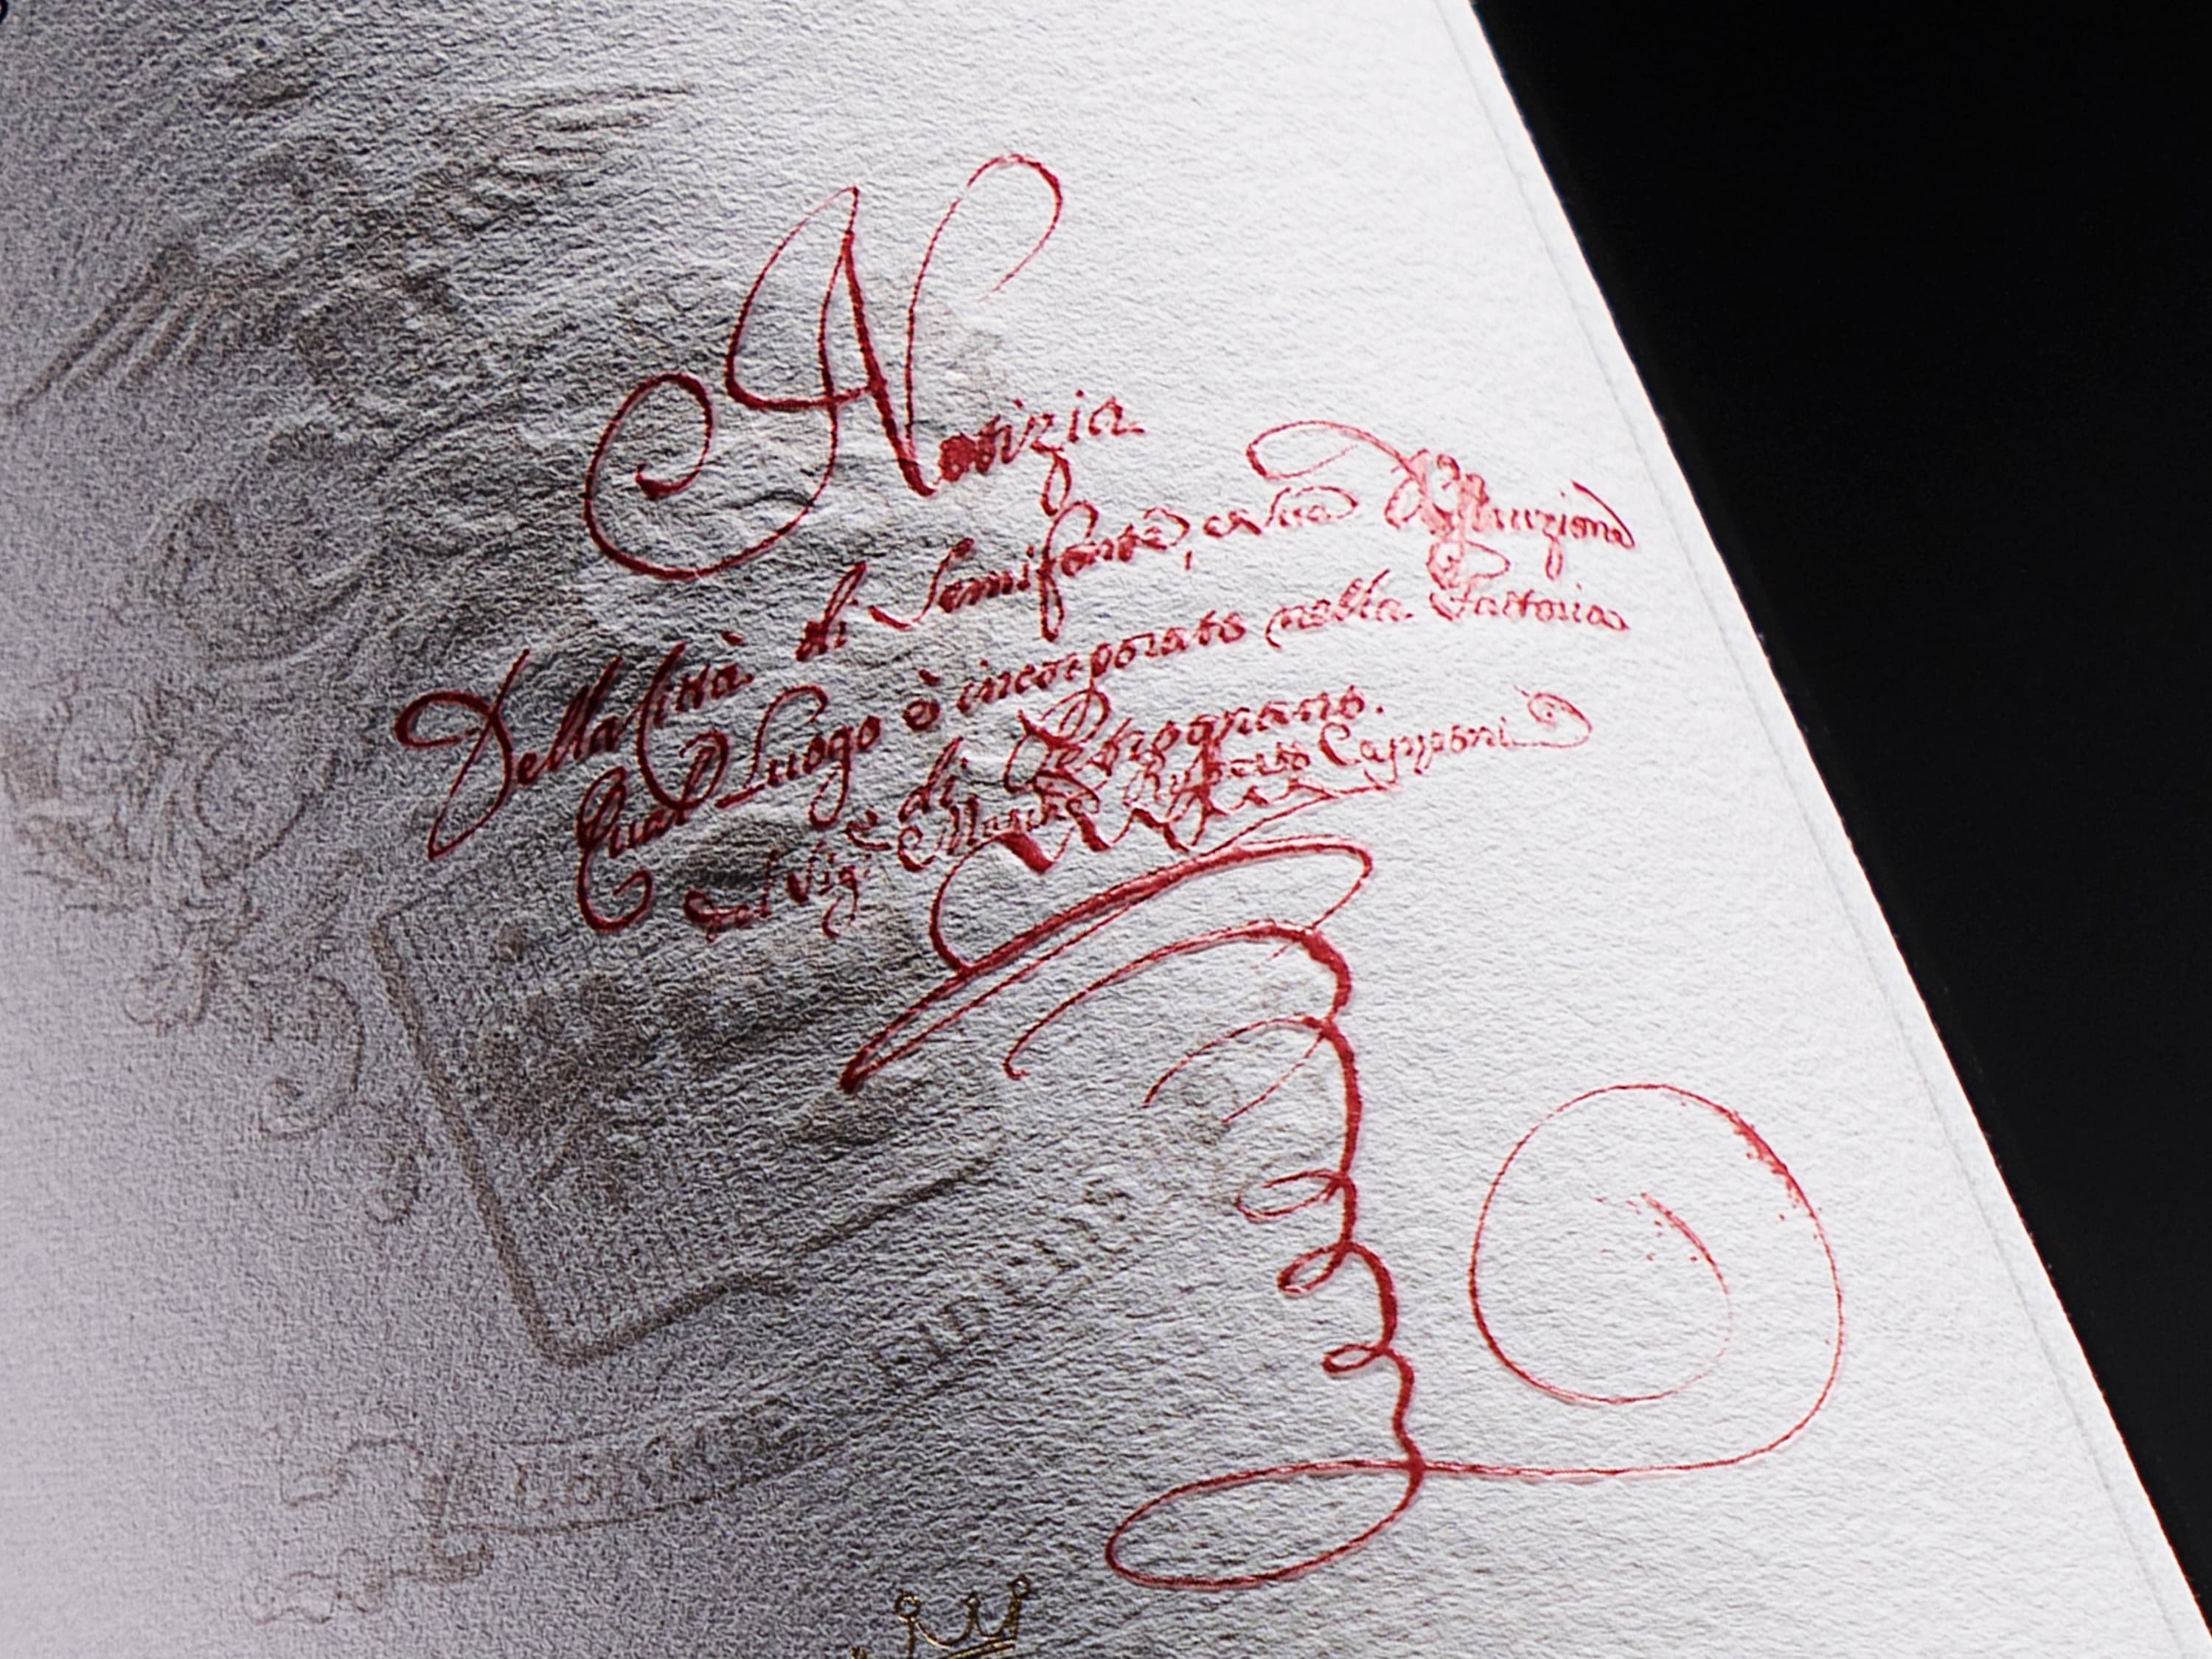 Notizia
Della Città di Semifonte, e sua Distruzione
Qual Luogo è incorporato nella Fattoria
e di Petrognano.
del Sig: March: Ruberto Capponi